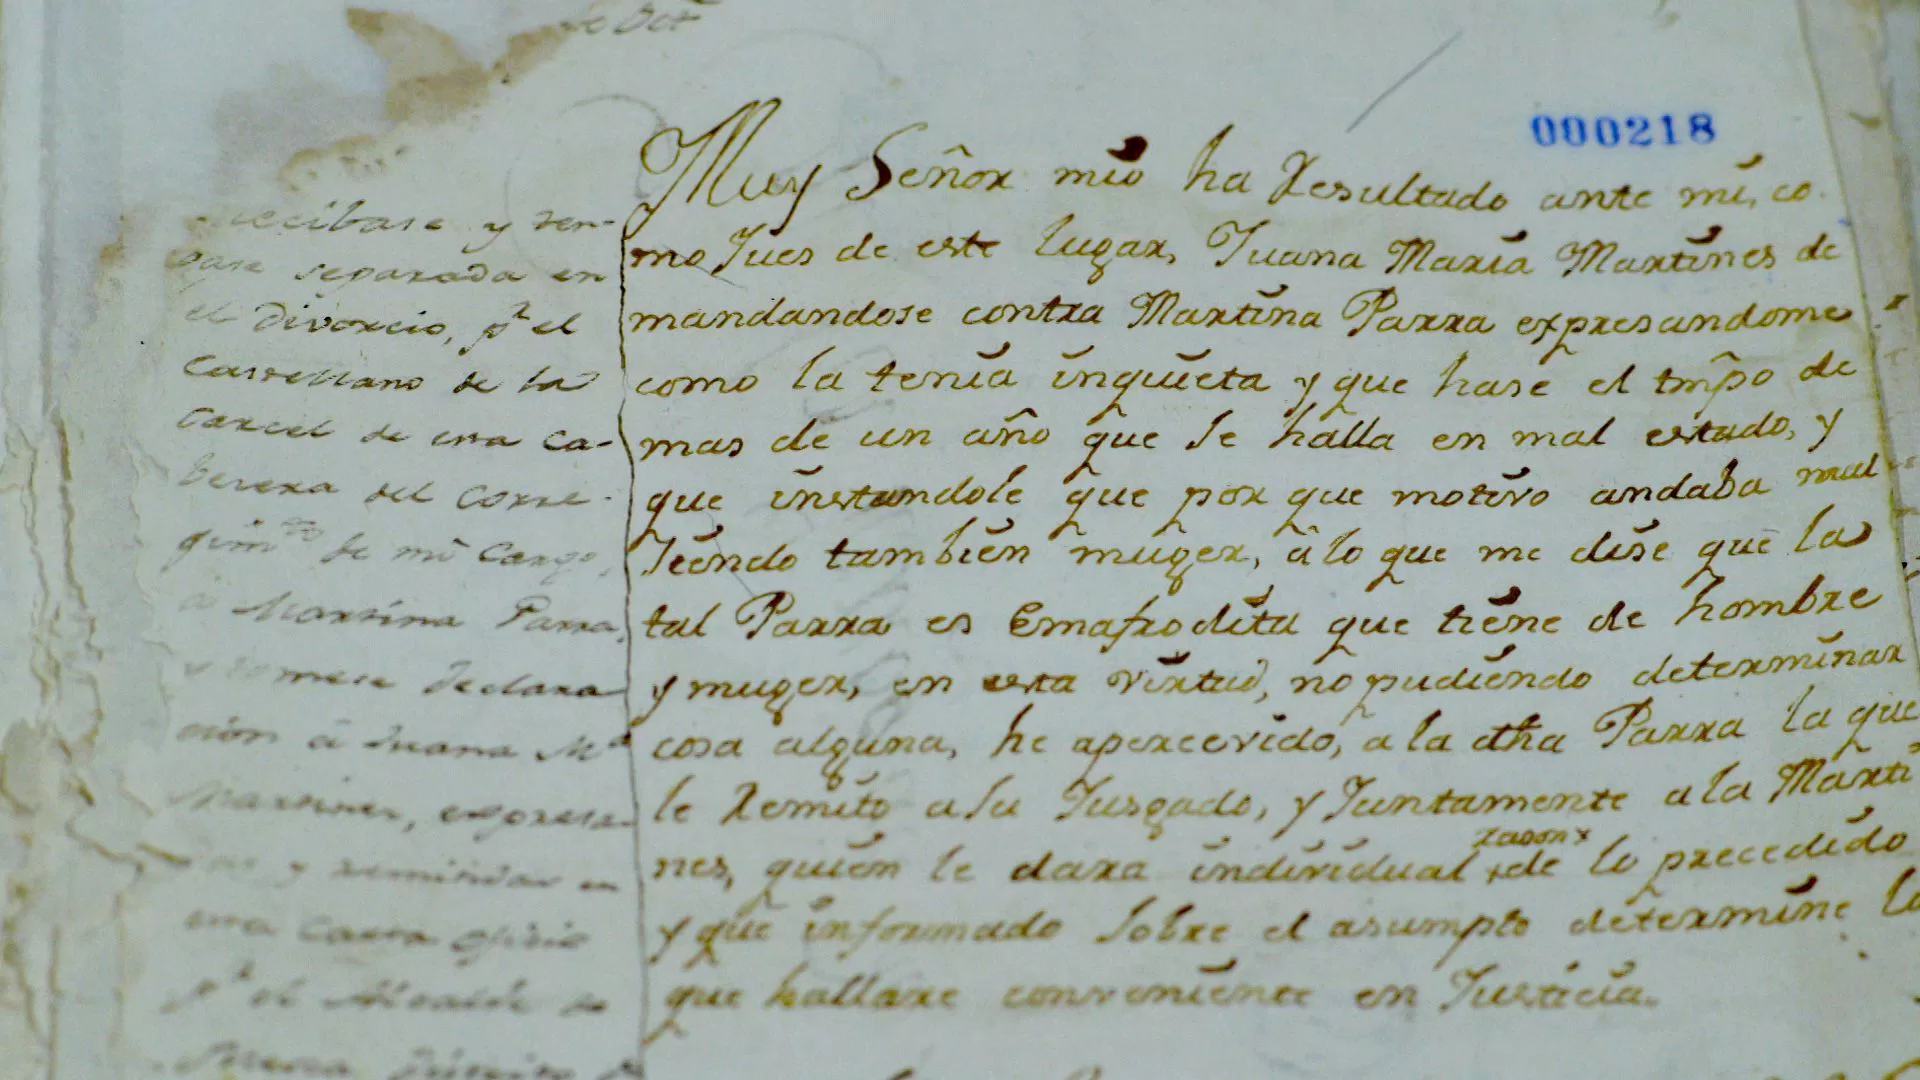 000218
Muy Señor mio ha Resultado ante mi, co
mo Jues de este lugar, Juana Maria Martines de
mandandose contra Martina Parra expresandome
como la tenia inquieta y que hase el tmpo de
mas de un año que se halla en mal estado, y
que instandole que por que motivo andaba mal
siendo tambien muger, â lo que me dise que la
tal Parra es Emafrodita que tiene de hombre
y muger, en esta virtud, no pudiendo determinar
cosa alguna, he apercevido, a la dha Parra la que
le Remito a su Jusgado, y Juntamente a la Marti
nes, quien le dara individual rason de lo precedido
y que informado sobre el asumpto determine lo
que hallare conveniente en Justicia.
recibase y
separada en
el Divorcio, pr el
Castellano de la
Carcel de esa Ca-
besera del Corre-
gimto de mi Cargo,
a Martina Parra,
y tomese declara
cion â Juana Ma
Martines, expresa
y en
esa Carta oficio
pr el Alcalde de